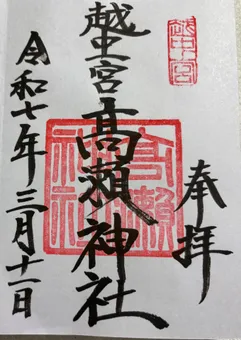 奉拝
越中一宮
髙瀬神社
令和七年三月十一日
越中一宮
高瀬神社